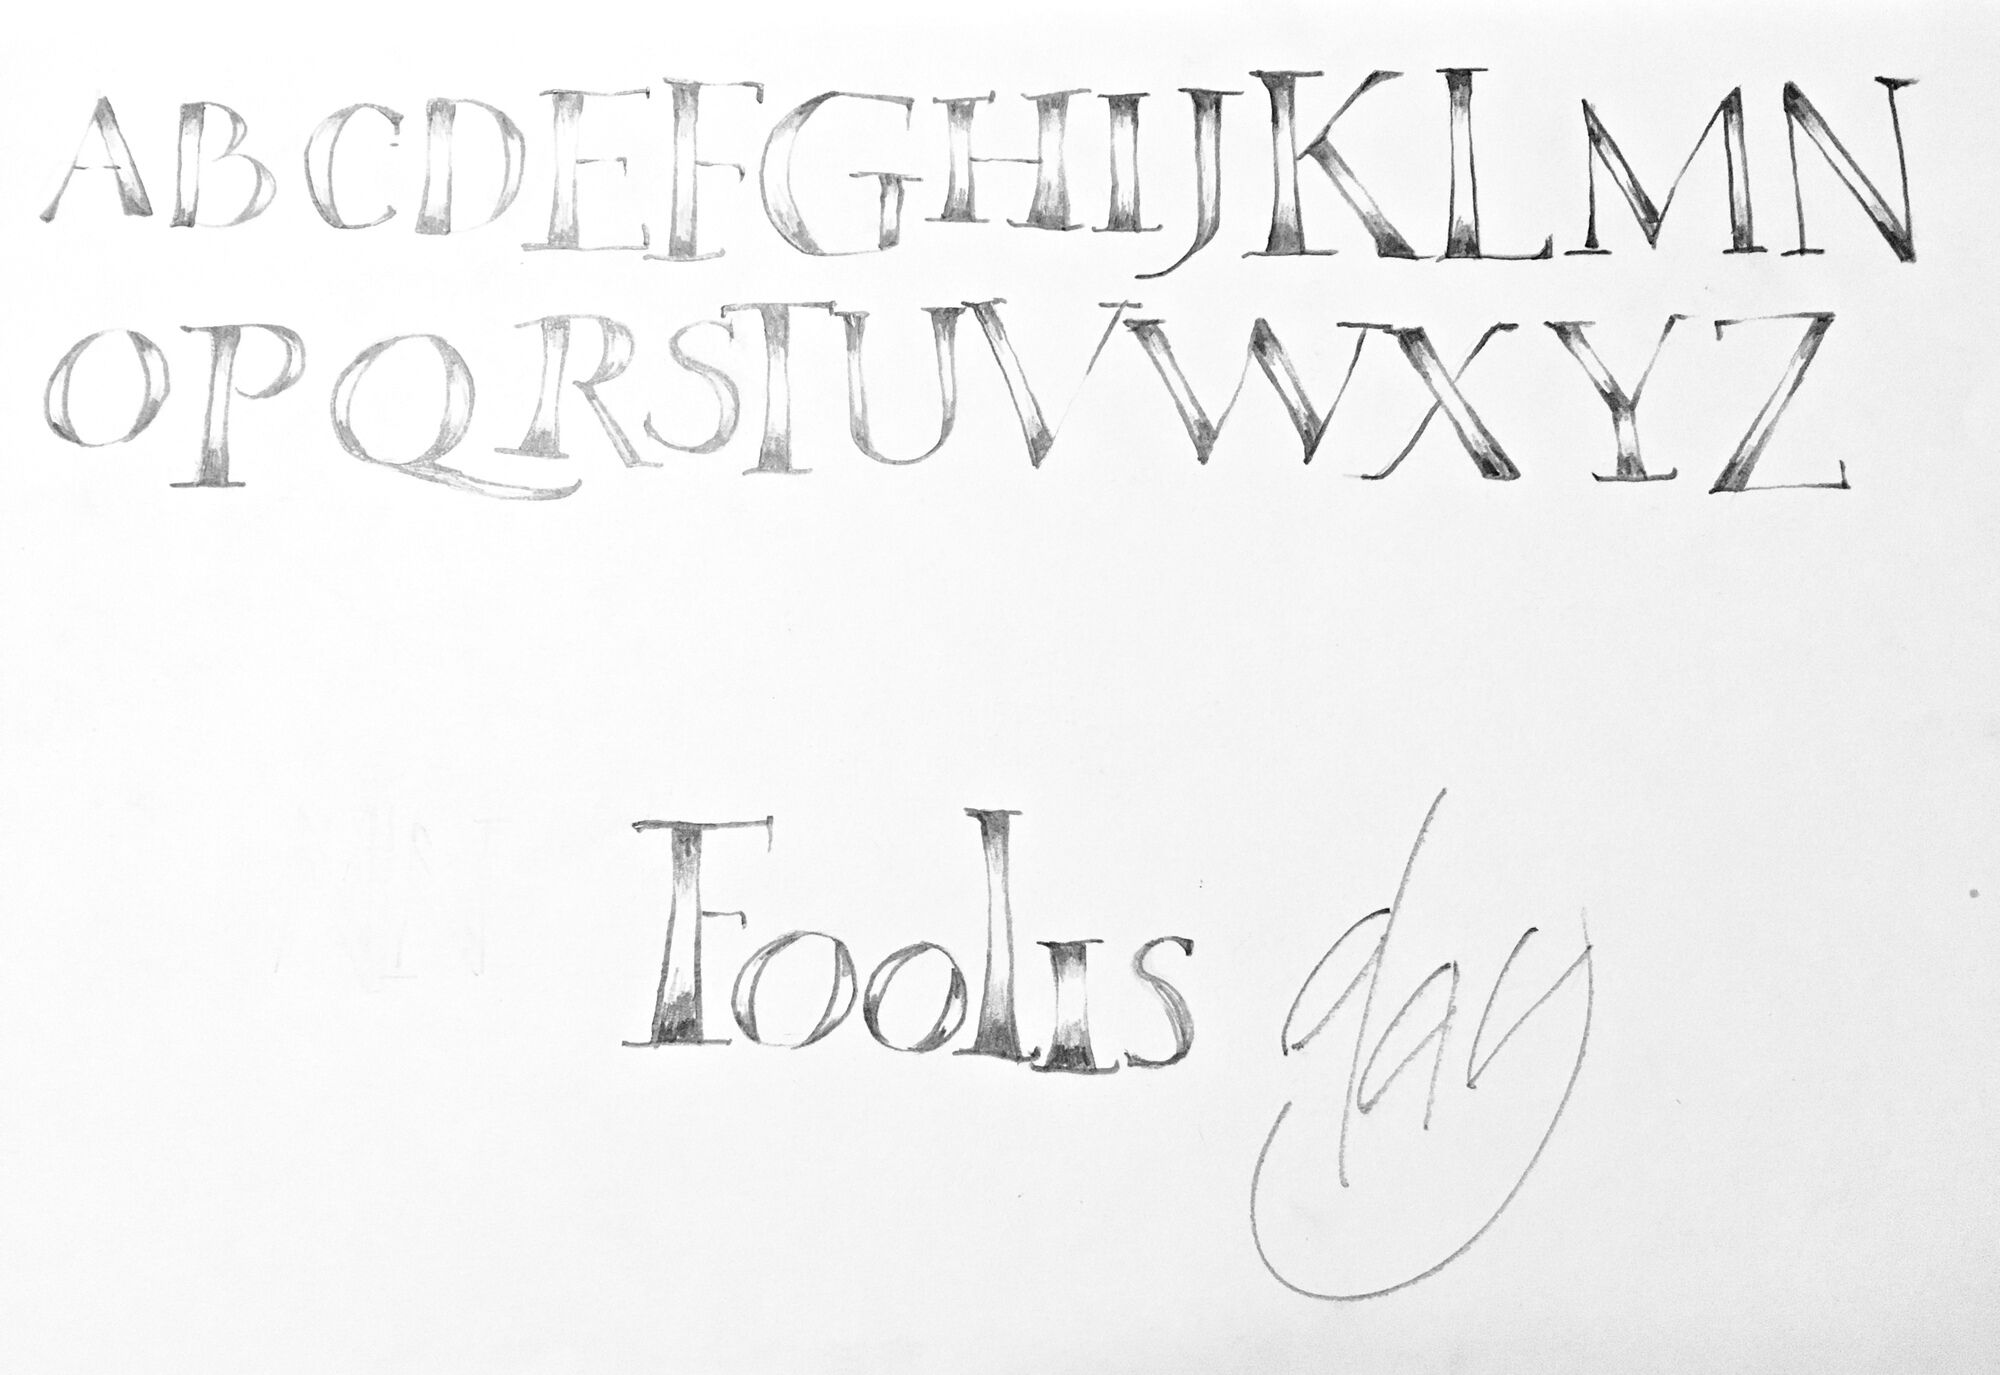 ABCDEFGHIJKLMN
OPQRSTUVWXYZ
Foolis day